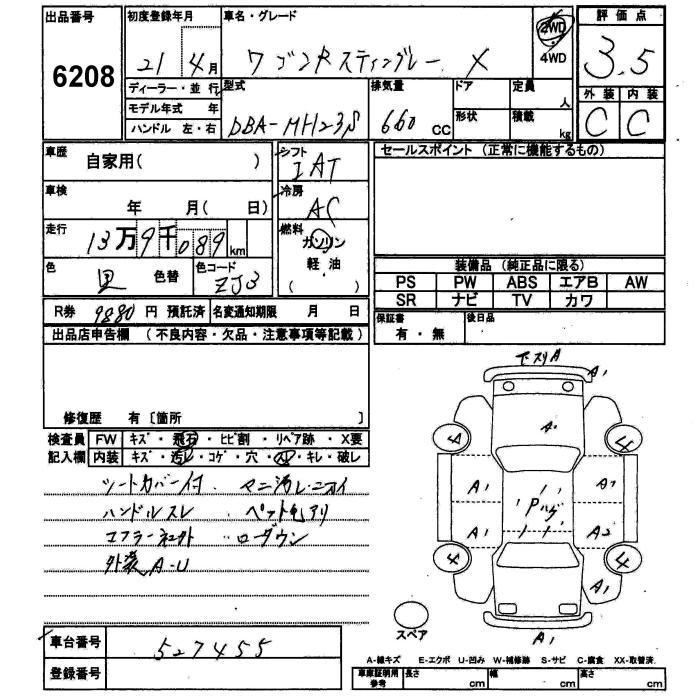 出品番号 初度登録年月 車名・グレード 2WD 評価点
6208 21 4月 ワゴンRスティングレー X 4WD 3.5
ディーラー・並行 型式 排気量 ドア 定員 人 外装 内装
モデル年式 年 DBA-MH23S 660cc 形状 積載 C C
ハンドル 左・右 kg
車歴 自家用( ) シフト IAT セールスポイント (正常に機能するもの)
車検 年 月( 日) 冷房 AC
走行 13万9千089km 燃料 ガソリン
軽・油
色 黒 色替 色コード ZJ3 ( )
装備品 (純正品に限る)
PS PW ABS エアB AW
SR ナビ TV カワ
R券 9880円 預託済 名変通知期限 月 日 保証書 有・無 後日品
出品店申告欄 (不良内容・欠品・注意事項等記載)
修復歴 有〔箇所 〕
検査員 FW キズ・飛石・ヒビ割・リペア跡・X要
記入欄 内装 キズ・汚レ・コゲ・穴・スレ・キレ・破レ
シートカバー付 マニ汚レ・ニオイ
ハンドルスレ ペット毛アリ
ローダウン
外装A-U
下スリA A1
A
4 4
A1 A1
Pハゲ
A1 A2
4 4
A1
A1
スペア
車台番号 527455
登録番号
A-線キズ E-エクボ U-凹み W-補修跡 S-サビ C-腐食 XX-取替済
車庫証明用参考 長さ cm 幅 cm 高さ cm